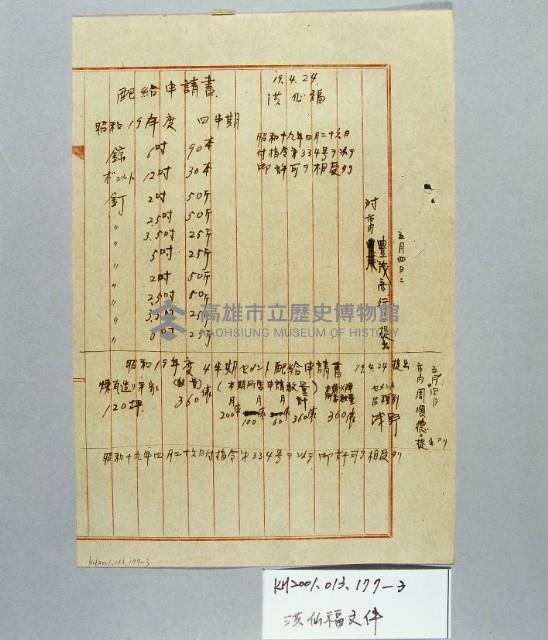 配給申請書
19.4.24.
洪仙福
昭和19年度 四半期
昭和十九年四月二十六日
付指令第334号ヲ以テ
御許可ヲ相受タリ
錠 6吋 90本
ボールト 12吋 30本
釘 2吋 50斤
〃 2.5吋 50斤
〃 3.5吋 25斤
〃 5吋 25斤
〃 2吋 50斤
〃 2.5吋 50斤
〃 25斤
〃 6吋 25斤
五月四日ニ
対市内豊茂商行提出
昭和19年度 4半期セメント配給申請書 19.4.24 提出
煉瓦造リ平家
120坪
360袋
(本期所要申請数量)
月 月 月 計
200袋 100 60 360袋
360袋
セメント
浅野
五月四日
市内周順徳
提出タリ
昭和十九年四月二十六日付指令第334号ヲ以テ御許可ヲ相受タリ
高雄市立歷史博物館
KAOHSIUNG MUSEUM OF HISTORY
KH2001.013.177-3
KH2001.013.177-3
洪仙福文件